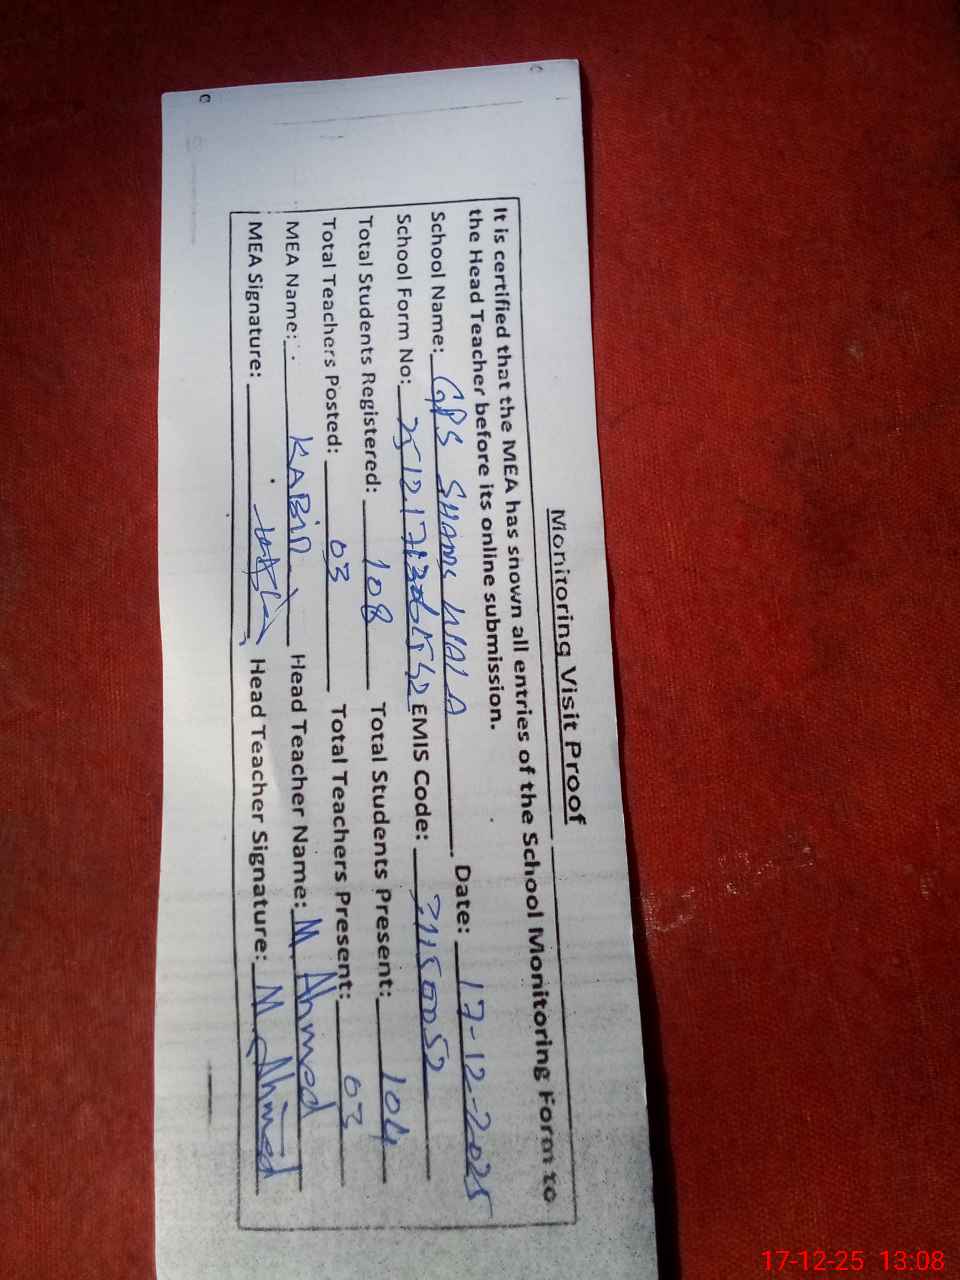 Monitoring Visit Proof
It is certified that the MEA has shown all entries of the School Monitoring Form to
the Head Teacher before its online submission.
School Name: GPS SHAMS WALA Date: 17-12-2025
School Form No: EMIS Code: 31150052
Total Students Registered: 108 Total Students Present: 104
Total Teachers Posted: 03 Total Teachers Present: 03
MEA Name: KABIR Head Teacher Name: M. Ahmed
MEA Signature: Head Teacher Signature: M. Ahmed
17-12-25 13:08